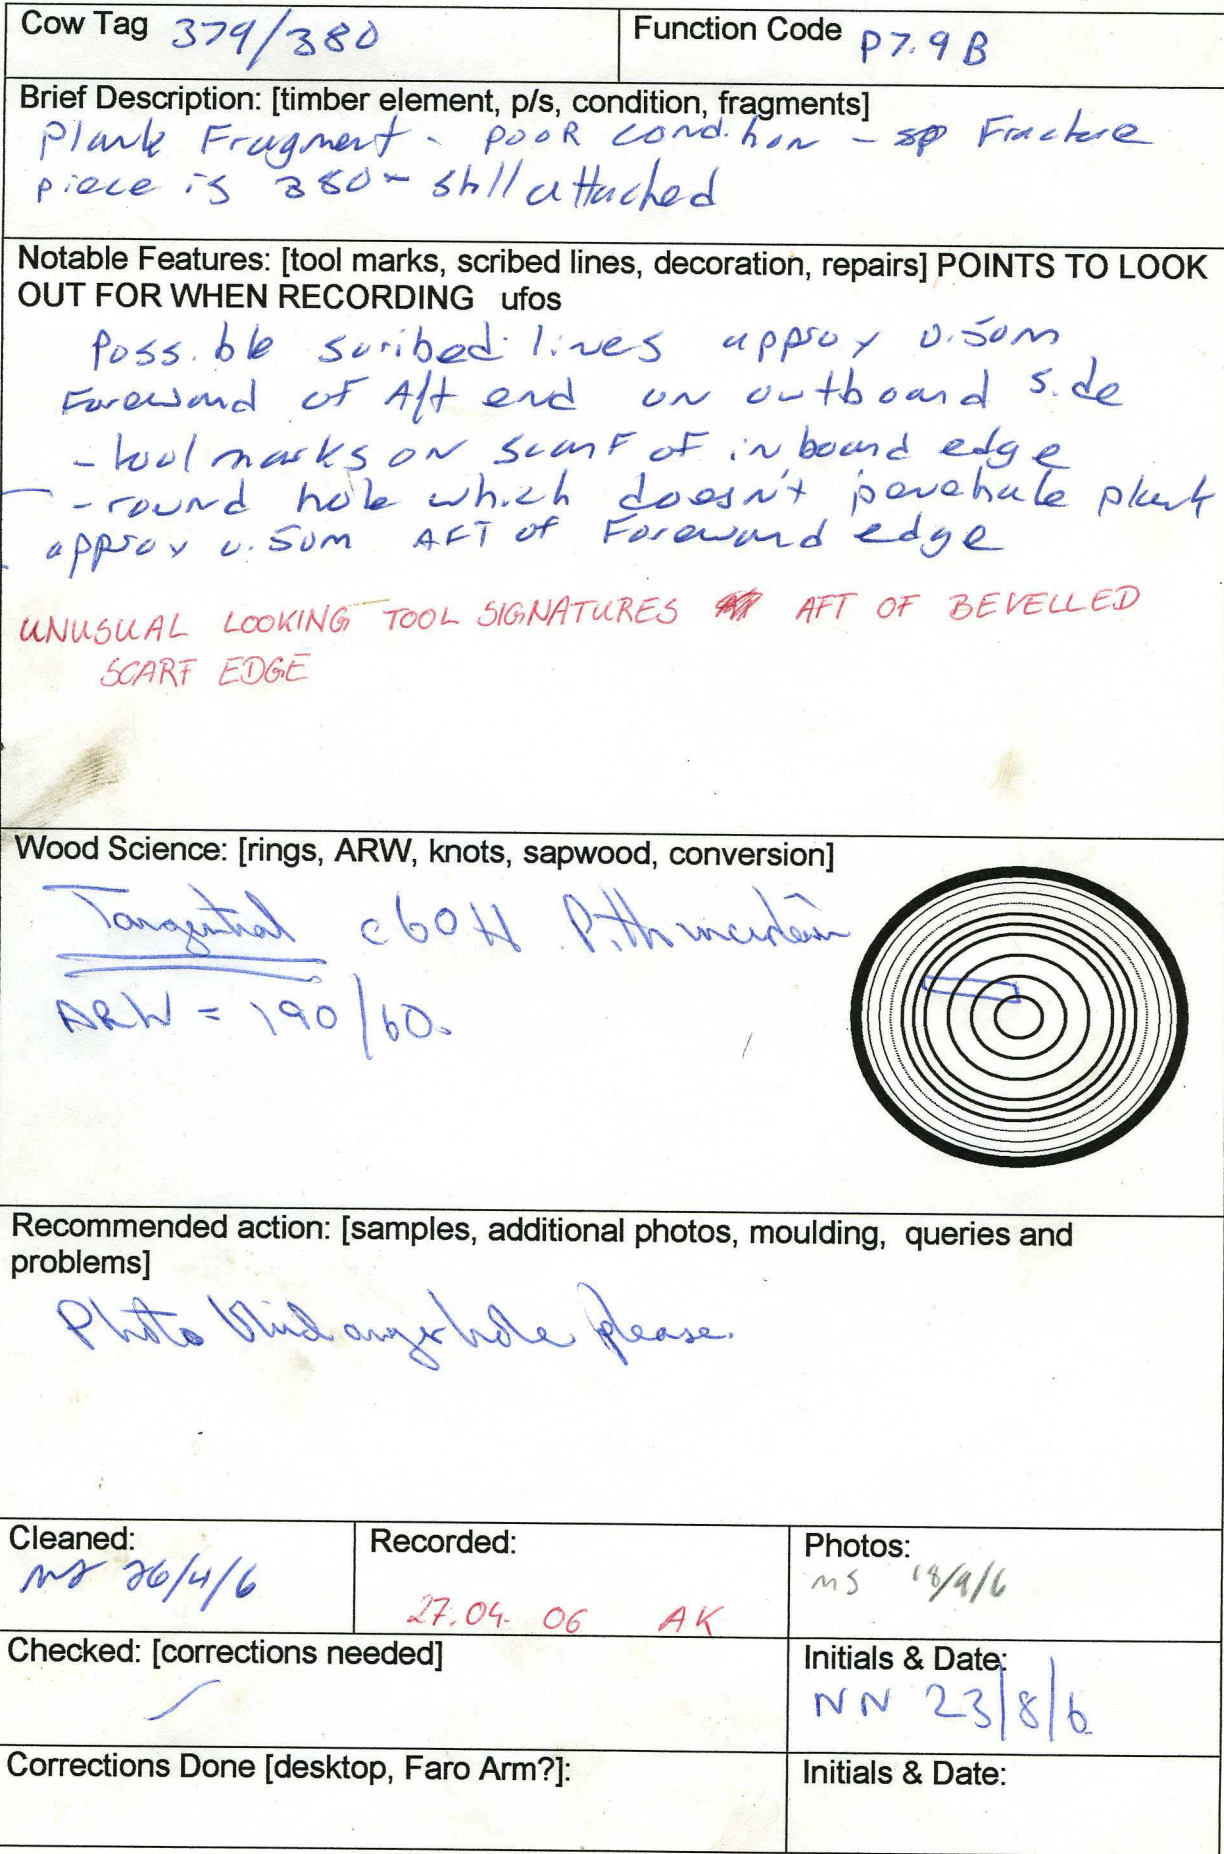 Cow Tag 379/380
Function Code P7.9B
Brief Description: [timber element, p/s, condition, fragments]
Plank Fragment - pooR condition - Fracture
piece is 380 - still attached
Notable Features: [tool marks, scribed lines, decoration, repairs] POINTS TO LOOK
OUT FOR WHEN RECORDING ufos
Possible scribed lines approx 0.50m
Foreward of Aft end on outboard side
- tool marks on scarf of inboard edge
- round hole which doesn't penetrate plank
approx 0.50m AFT of Foreward edge
UNUSUAL LOOKING TOOL SIGNATURES AFT OF BEVELLED
SCARF EDGE
Wood Science: [rings, ARW, knots, sapwood, conversion]
Tangential c60H Pith
ARW = 190/60.
Recommended action: [samples, additional photos, moulding, queries and
problems]
Photo blind auger hole please.
Cleaned:
26/4/6
Recorded:
27.04. 06 AK
Photos:
MS 18/9/6
Checked: [corrections needed]
Initials & Date:
NN 23/8/6
Corrections Done [desktop, Faro Arm?]:
Initials & Date: